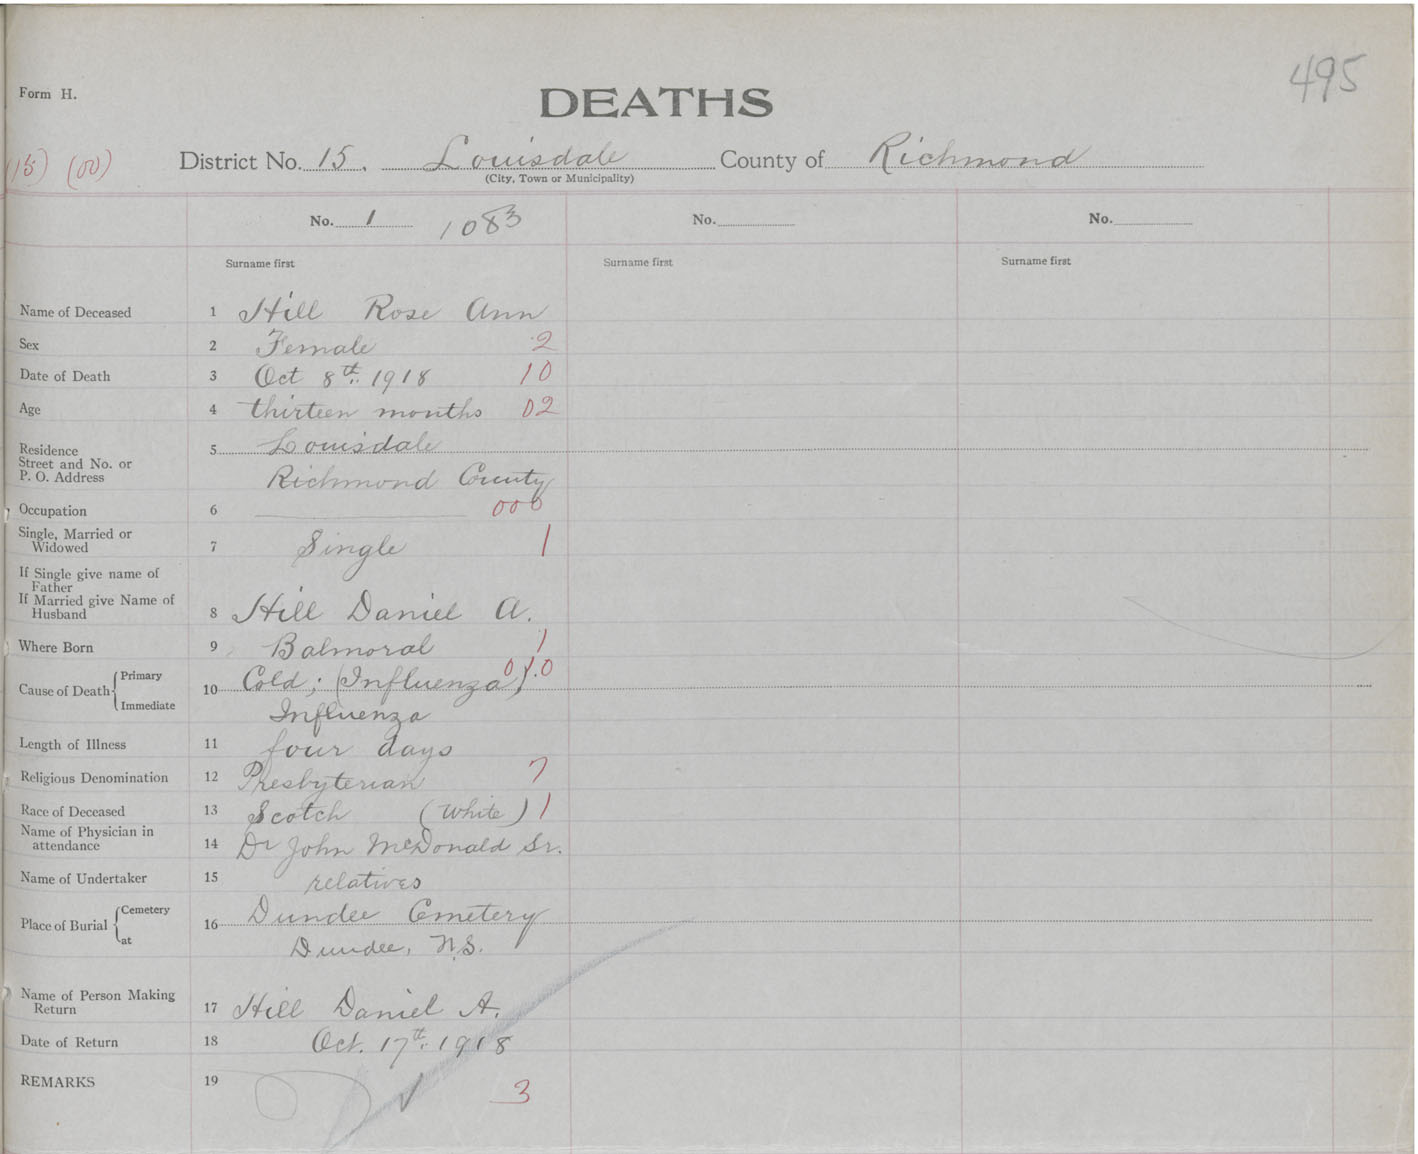 495
Form H.
DEATHS
(15) (00) District No. 15. Louisdale County of Richmond
(City, Town or Municipality)
No. 1 1083 No. No.
Surname first Surname first Surname first
Name of Deceased 1 Hill Rose Ann
Sex 2 Female 2
Date of Death 3 Oct 8th. 1918 10
Age 4 thirteen months 02
Residence 5 Louisdale
Street and No. or
P. O. Address Richmond County
Occupation 6 000
Single, Married or
Widowed 7 Single 1
If Single give name of
Father
If Married give Name of
Husband 8 Hill Daniel A.
Where Born 9 Balmoral 1
Cause of Death Primary 10 Cold; (Influenza) 010
Immediate Influenza
Length of Illness 11 four days
Religious Denomination 12 Presbyterian 7
Race of Deceased 13 Scotch (White) 1
Name of Physician in
attendance 14 Dr John McDonald Sr.
Name of Undertaker 15 relatives
Place of Burial Cemetery 16 Dundee Cemetery
at Dundee, N.S.
Name of Person Making
Return 17 Hill Daniel A.
Date of Return 18 Oct. 17th. 1918
REMARKS 19 3